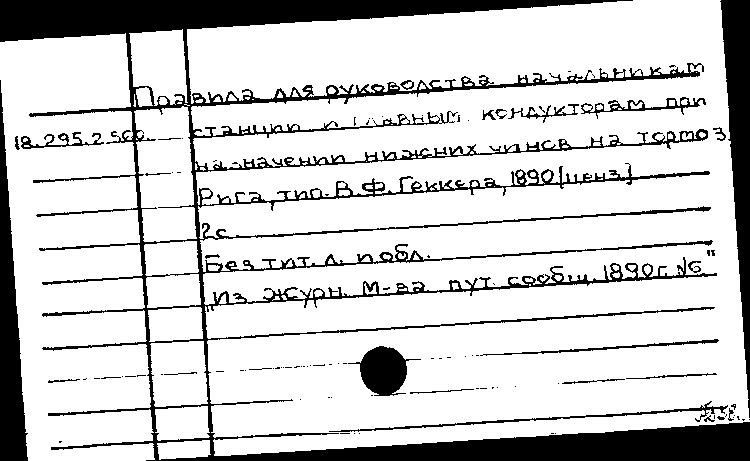 Правила для руководства начальникам
18.295.2.500. станции и главным кондукторам при
назначении нижних чинов на тормоз.
Рига, тип. В.Ф. Геккера, 1890 [ценз.]
2с.
Без тит. л. и обл.
"Из журн. М-ва пут. сообщ. 1890г. №6"